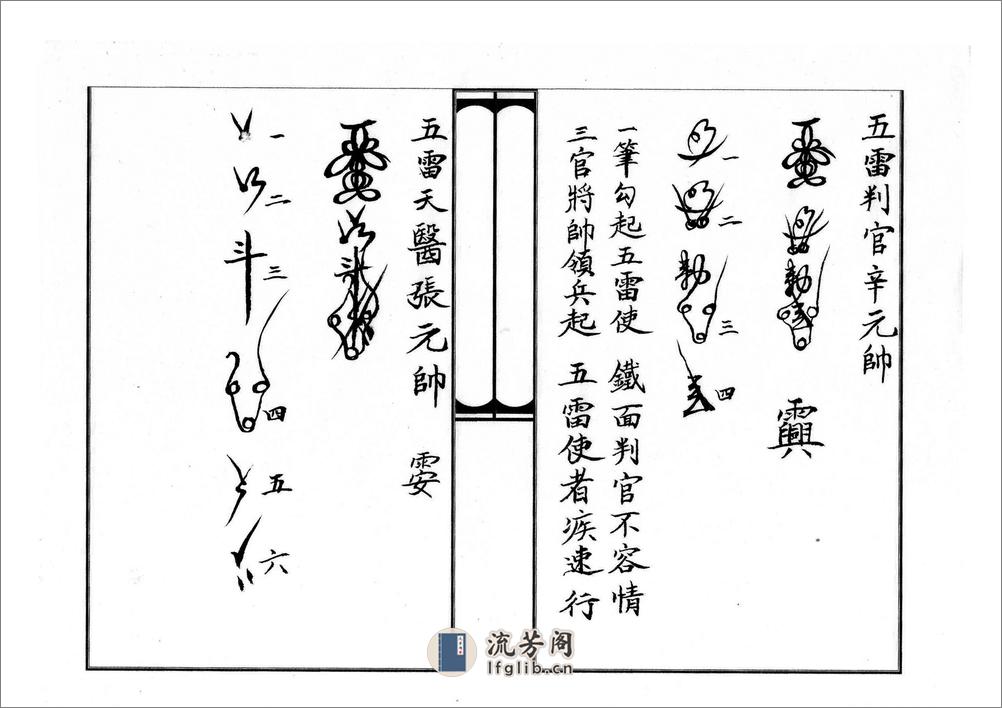 五雷判官辛元帥
一
二
勅
三
四
一筆勾起五雷使 鐵面判官不容情
三官將帥領兵起 五雷使者疾速行
五雷天醫張元帥
一
二
斗 三
四
五
六
流芳阁
lfglib.cn